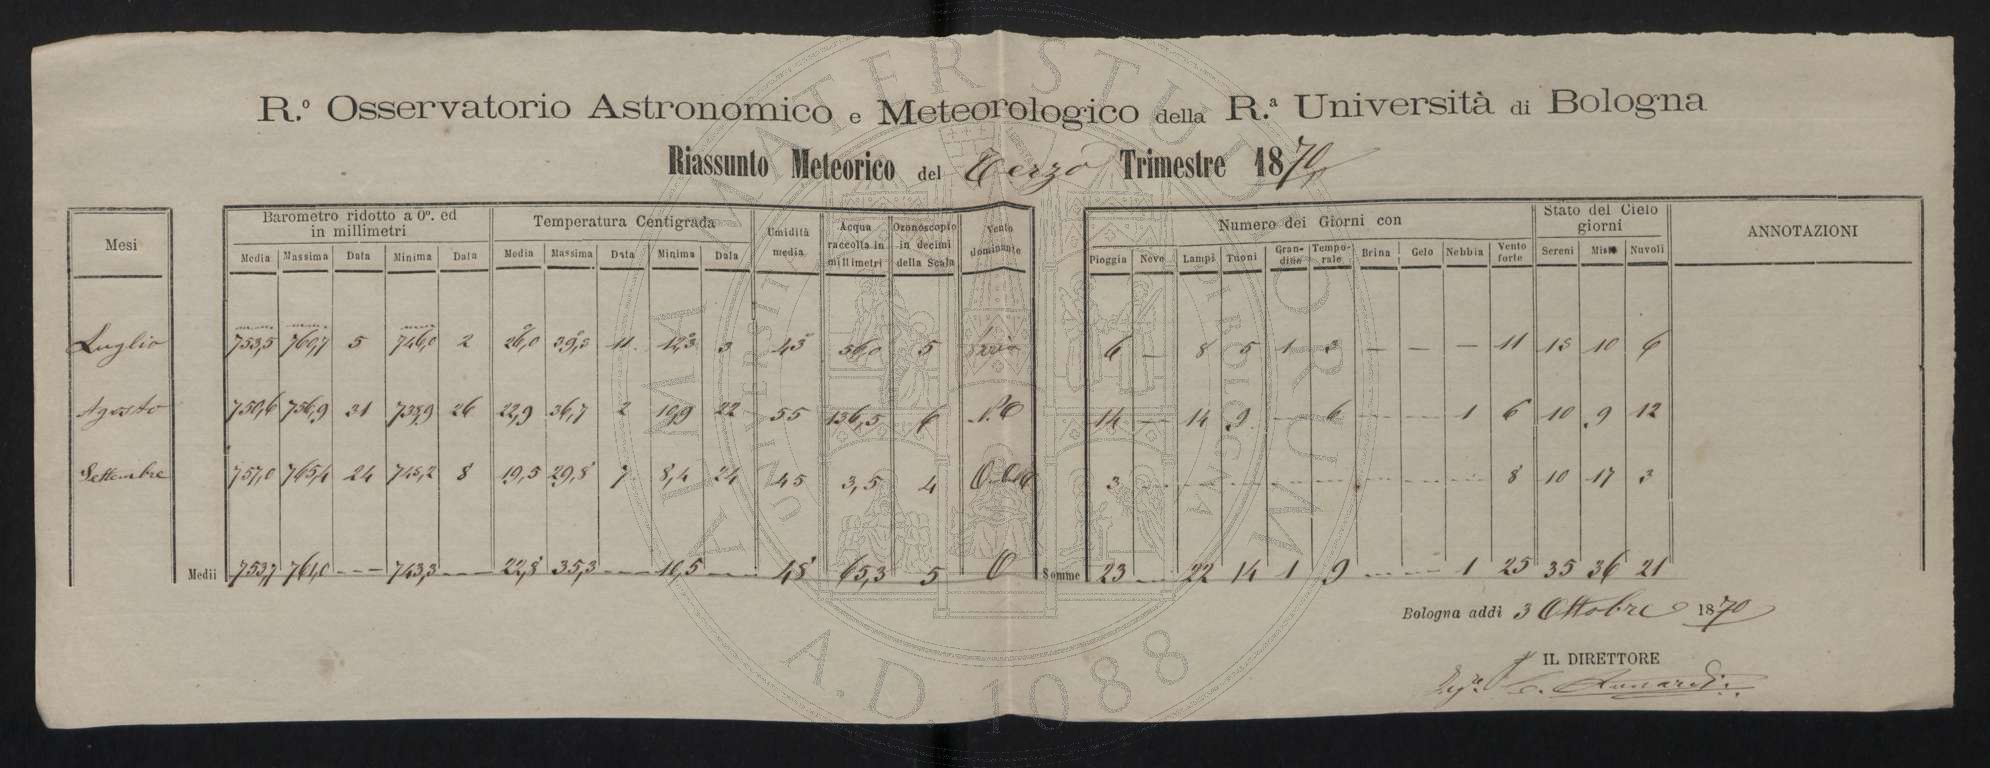 R.º Osservatorio Astronomico e Meteorologico della R.ª Università di Bologna
Riassunto Meteorico del Terzo Trimestre 1870
Mesi
Barometro ridotto a 0º. ed in millimetri
Temperatura Centigrada
Umidità media
Acqua raccolta in millimetri
Ozonoscopio in decimi della Scala
Vento dominante
Numero dei Giorni con
Stato del Cielo giorni
ANNOTAZIONI
Media Massima Data Minima Data Media Massima Data Minima Data
Pioggia Neve Lampi Tuoni Grandine Temporale Brina Gelo Nebbia Vento forte Sereni Misti Nuvoli
Luglio 753,5 760,7 5 746,0 2 26,0 11 12,3 3 56,0 5 6 — 8 5 1 3 — — — 11 15 10 6
Agosto 750,6 756,9 31 738,9 26 22,9 36,7 2 10,9 22 55 136,5 6 14 — 14 9 — 6 — — 1 6 10 9 12
Settembre 757,0 765,4 24 745,2 8 19,5 29,8 7 8,4 24 45 3,5 4 3 8 10 17 3
Medii 753,7 761,0 — 743,3 — 22,8 35,3 — 10,5 — 48 65,3 5 O Somme 23 — 22 14 1 9 — — 1 25 35 36 21
Bologna addì 3 Ottobre 1870
IL DIRETTORE
ALMA MATER STUDIORUM
UNIVERSITÀ DI BOLOGNA
A.D. 1088